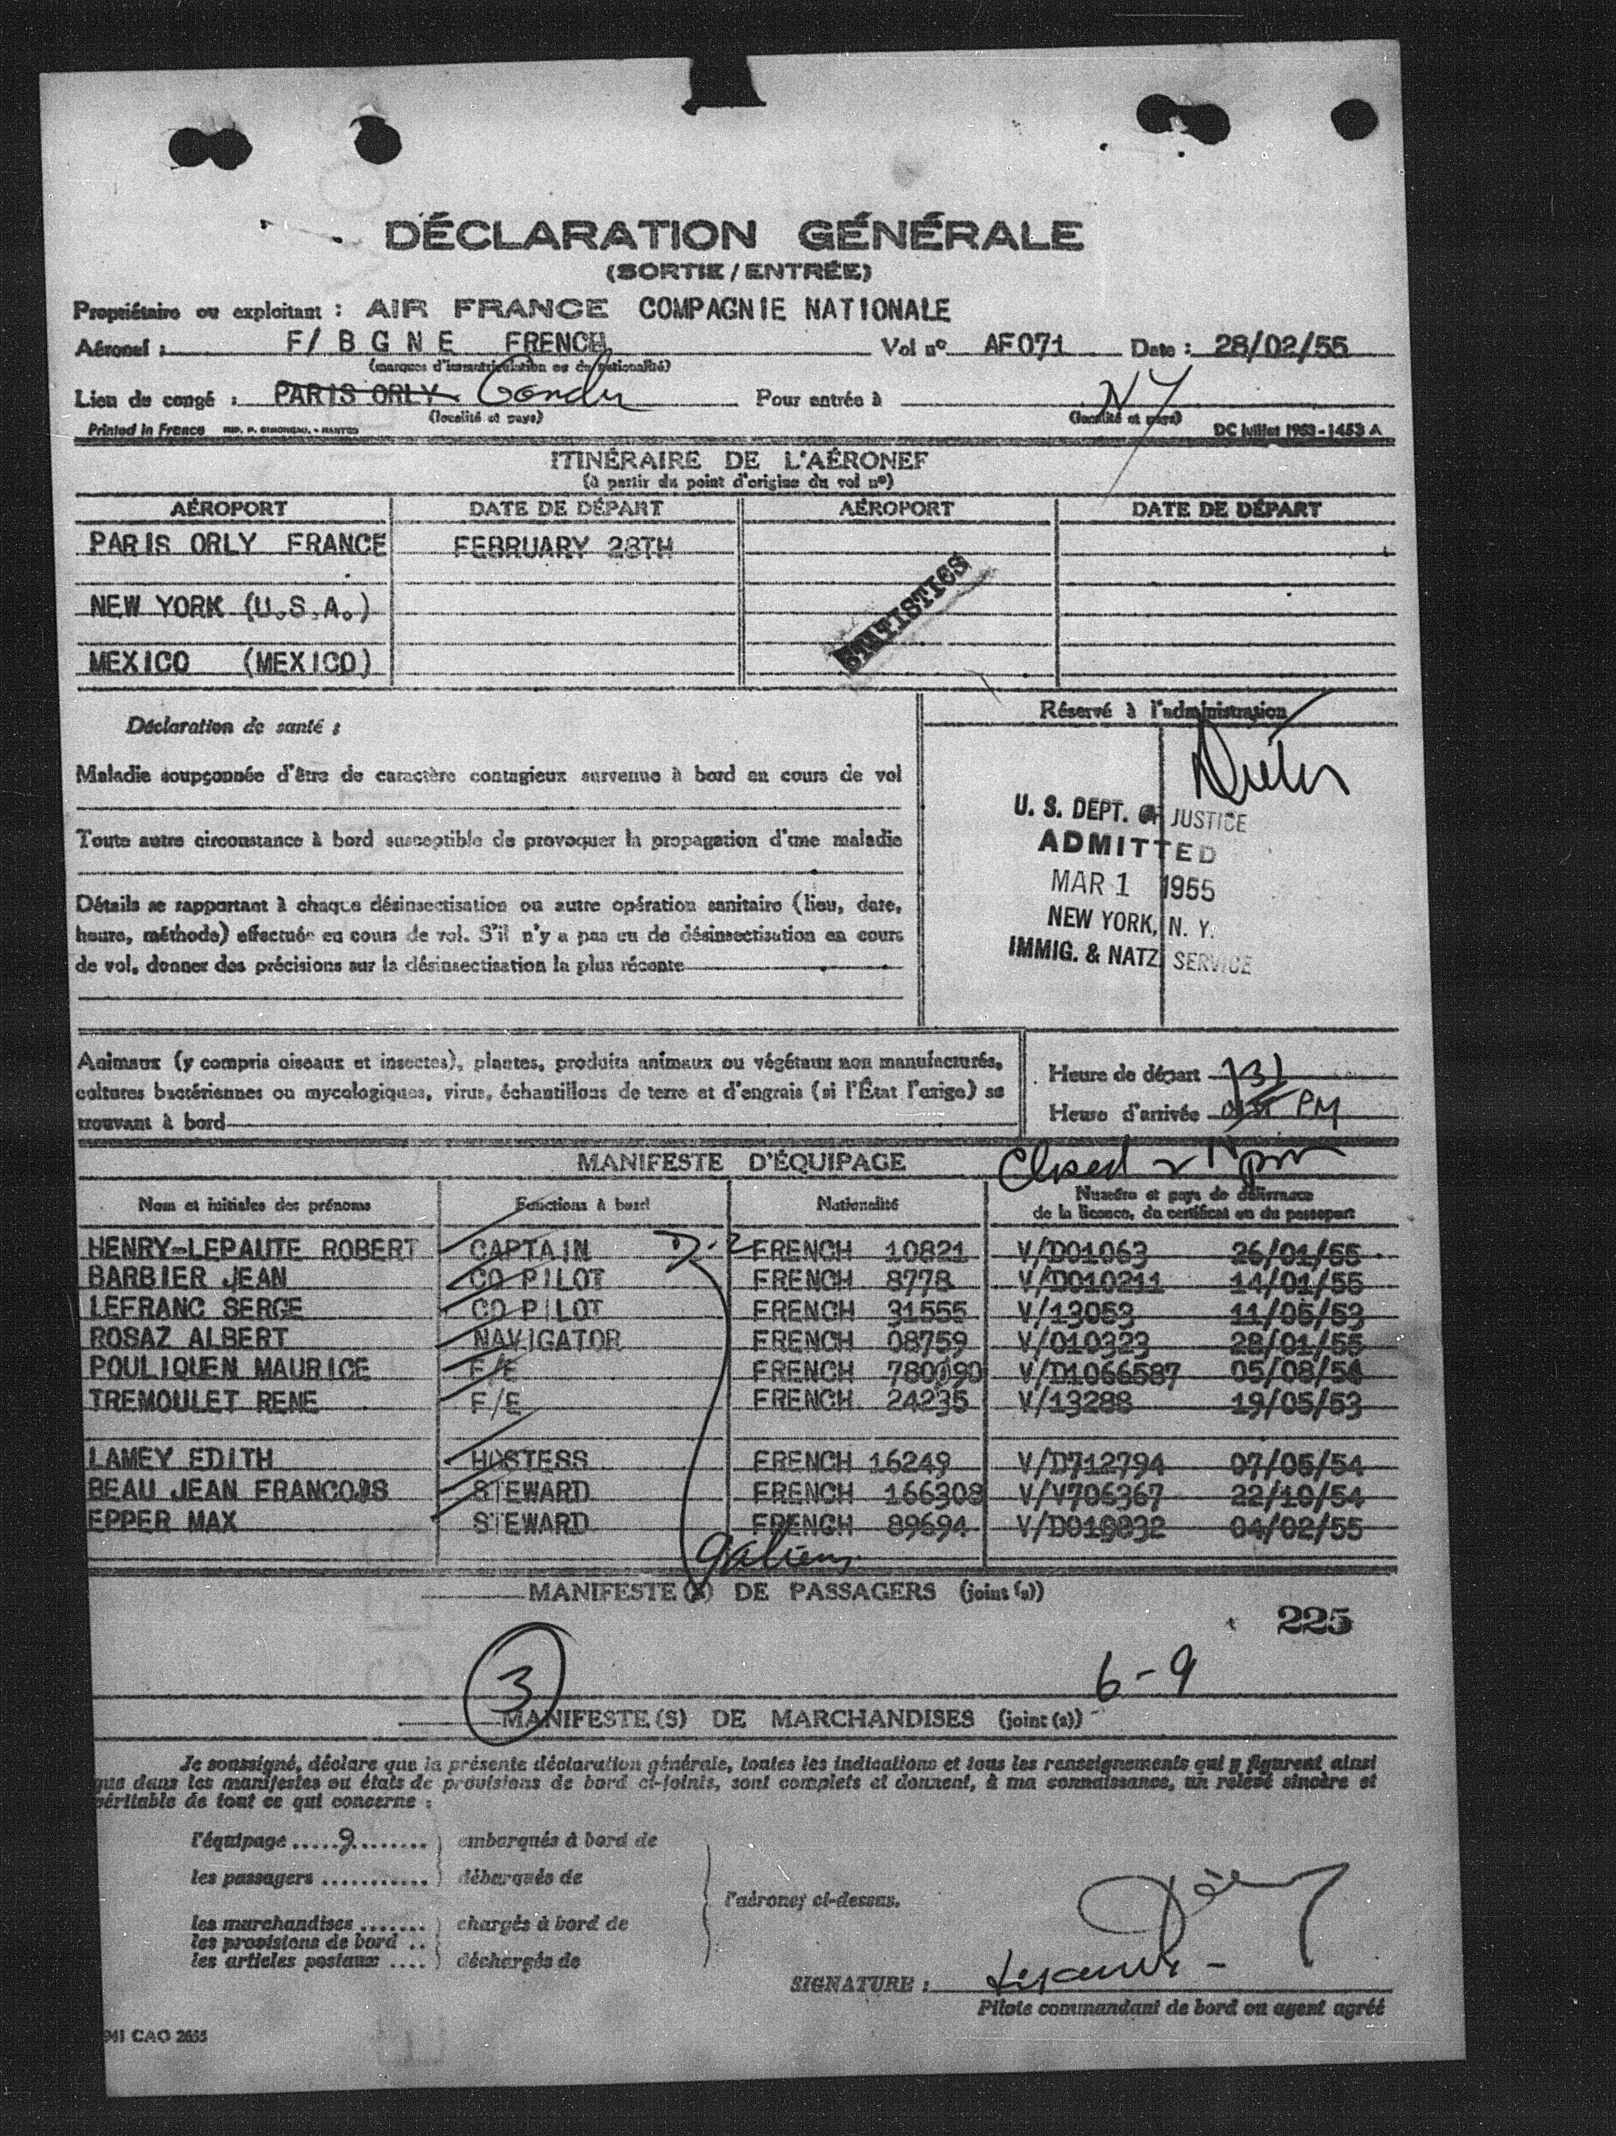 DÉCLARATION GÉNÉRALE
(SORTIE / ENTRÉE)
Propriétaire ou exploitant : AIR FRANCE COMPAGNIE NATIONALE
Aéronef : F/ B G N E FRENCH Vol nº AF071 Date : 28/02/55
(marques d'immatriculation et de nationalité)
Lieu de congé : PARIS ORLY Gander Pour entrée à NY
(localité et pays) (localité et pays)
Printed in France DC juillet 1953 - 1453 A
ITINÉRAIRE DE L'AÉRONEF
(à partir du point d'origine du vol nº)
AÉROPORT DATE DE DÉPART AÉROPORT DATE DE DÉPART
PARIS ORLY FRANCE FEBRUARY 28TH
NEW YORK (U.S.A.)
MEXICO (MEXICO)
STATISTICS
Déclaration de santé :
Réservé à l'administration
Maladie soupçonnée d'être de caractère contagieux survenue à bord en cours de vol
Toute autre circonstance à bord susceptible de provoquer la propagation d'une maladie
Détails se rapportant à chaque désinsectisation ou autre opération sanitaire (lieu, date,
heure, méthode) effectuée en cours de vol. S'il n'y a pas eu de désinsectisation en cours
de vol, donner des précisions sur la désinsectisation la plus récente
U. S. DEPT. OF JUSTICE
ADMITTED
MAR 1 1955
NEW YORK, N. Y.
IMMIG. & NATZ SERVICE
Animaux (y compris oiseaux et insectes), plantes, produits animaux ou végétaux non manufacturés,
cultures bactériennes ou mycologiques, virus, échantillons de terre et d'engrais (si l'État l'exige) se
trouvant à bord
Heure de départ 131
Heure d'arrivée PM
Closed pm
MANIFESTE D'ÉQUIPAGE
Nom et initiales des prénoms Fonctions à bord Nationalité Numéro et pays de délivrance
de la licence, du certificat ou du passeport
HENRY-LEPAUTE ROBERT CAPTAIN D-2 FRENCH 10821 V/D01063 26/01/55
BARBIER JEAN CO PILOT FRENCH 8778 V/D010211 14/01/55
LEFRANC SERGE CO PILOT FRENCH 31555 V/13053 11/05/53
ROSAZ ALBERT NAVIGATOR FRENCH 08759 V/010323 28/01/55
POULIQUEN MAURICE F/E FRENCH 780090 V/D1066587 05/08/54
TREMOULET RENE F/E FRENCH 24235 V/13288 19/05/53
LAMEY EDITH HOSTESS FRENCH 16249 V/D712794 07/05/54
BEAU JEAN FRANCOIS STEWARD FRENCH 166308 V/V706367 22/10/54
EPPER MAX STEWARD FRENCH 89694 V/D019832 04/02/55
MANIFESTE(S) DE PASSAGERS (joint (s))
225
3 6-9
MANIFESTE(S) DE MARCHANDISES (joint (s))
Je soussigné, déclare que la présente déclaration générale, toutes les indications et tous les renseignements qui y figurent ainsi
que dans les manifestes ou états de provisions de bord ci-joints, sont complets et donnent, à ma connaissance, un relevé sincère et
véritable de tout ce qui concerne :
l'équipage .....9........ embarqués à bord de
les passagers ........... débarqués de
l'aéronef ci-dessus.
les marchandises ....... chargés à bord de
les provisions de bord ..
les articles postaux .... déchargés de
SIGNATURE :
Pilote commandant de bord ou agent agréé
941 CAO 2655